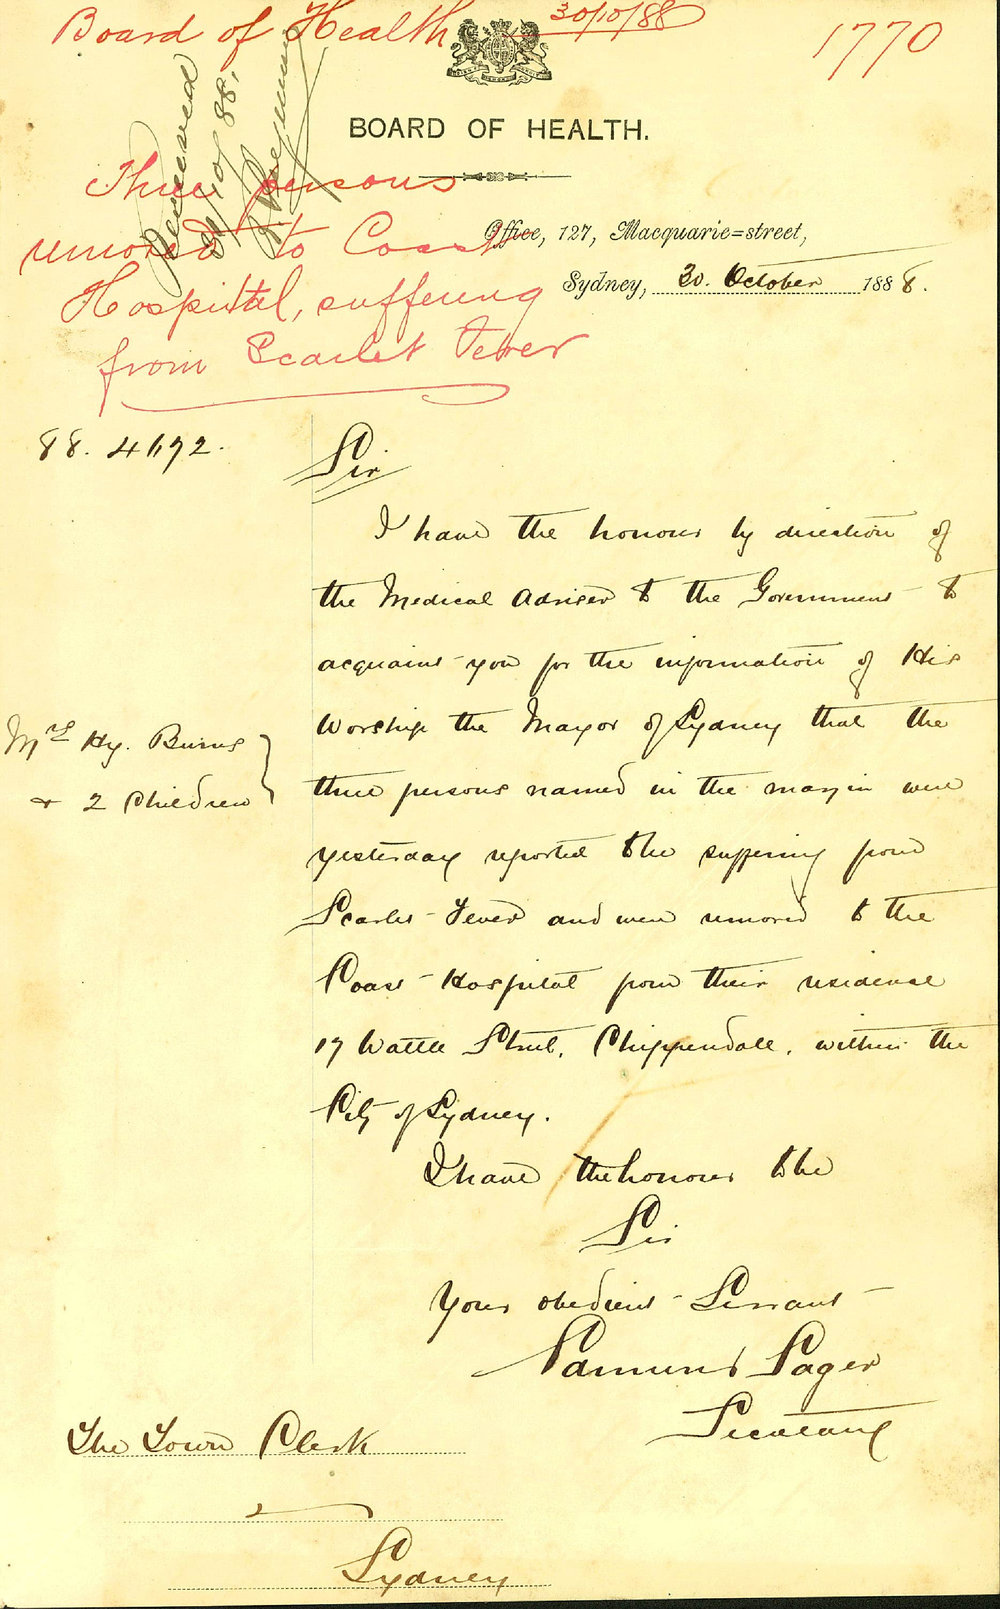 Board of Health 30/10/88
1770
BOARD OF HEALTH.
Three persons
removed to Coast
Hospital, suffering
from Scarlet Fever
Office, 127, Macquarie=street,
Sydney, 30. October 1888.
88. 4672.
Sir
I have the honour by direction of
the Medical Adviser to the Government to
acquaint you for the information of His
Worship the Mayor of Sydney that the
Mrs Hy. Burns
& 2 Children
three persons named in the margin were
yesterday reported to be suffering from
Scarlet Fever and were removed to the
Coast Hospital from their residence
17 Wattle Street, Chippendale, within the
City of Sydney.
I have the honour to be
Sir
Your obedient Servant
Edmund Sager
Secretary
The Town Clerk
Sydney